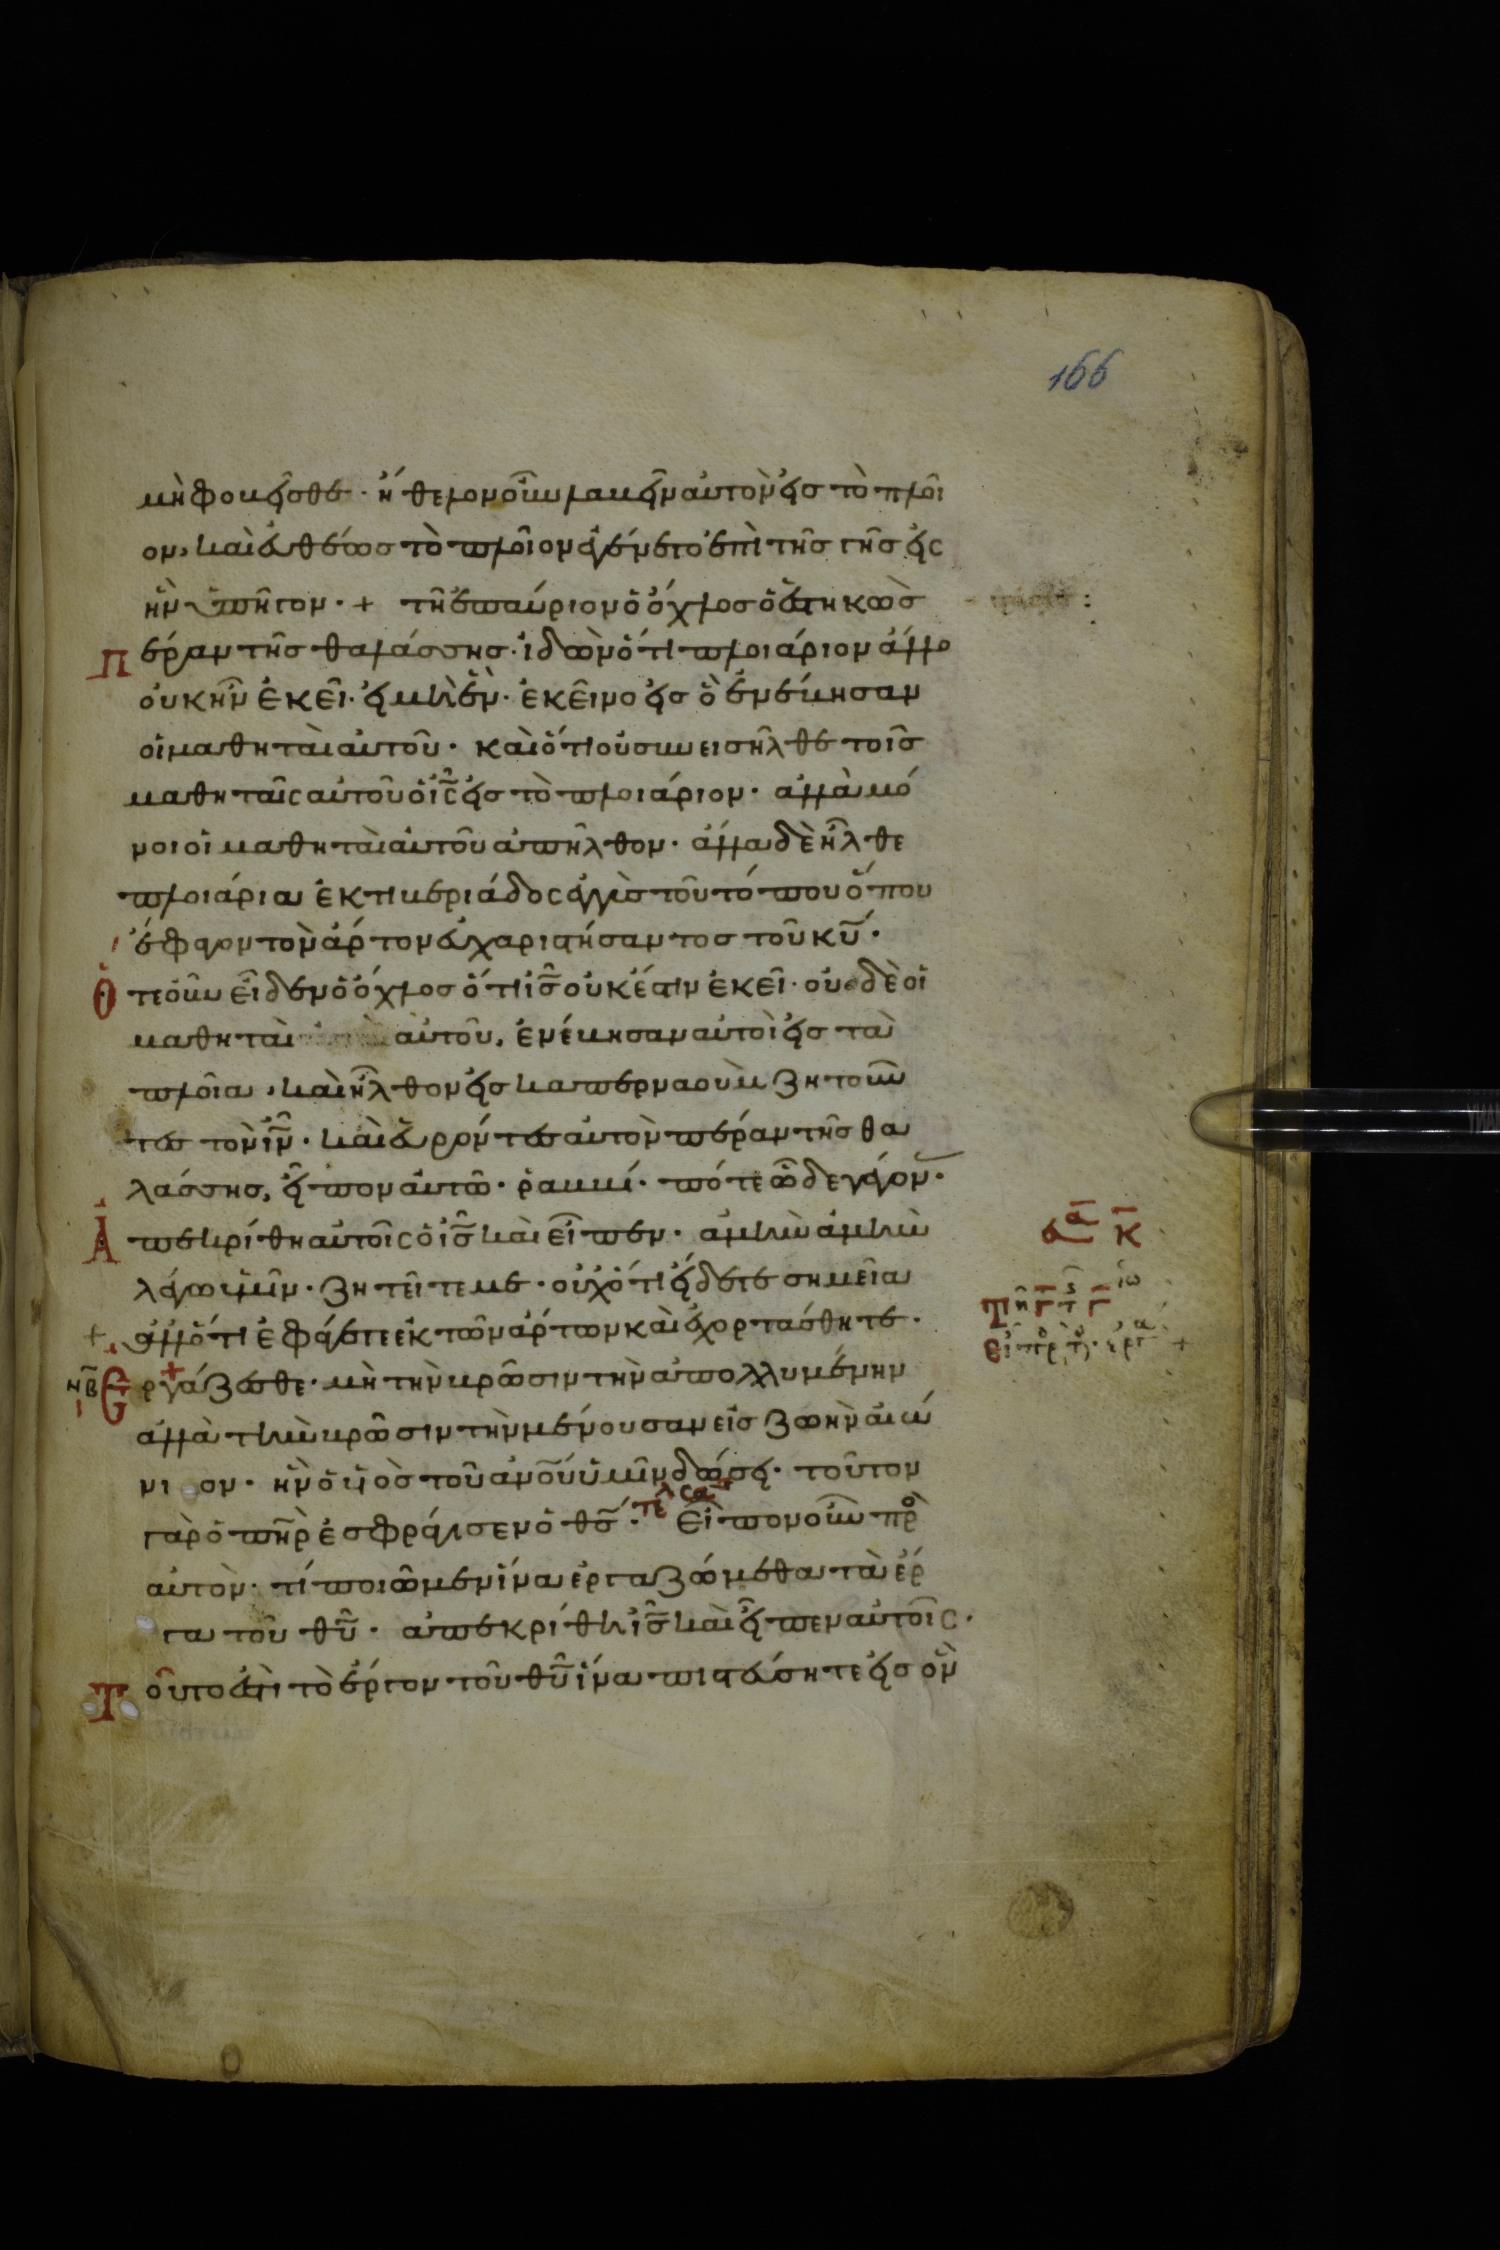 166
μὴ φοβεῖσθε · ἤθελον οὖν λαβεῖν αὐτὸν εἰς τὸ πλοῖ
ον, καὶ εὐθέως τὸ πλοῖον ἐγένετο ἐπὶ τῆς γῆς εἰς
ἣν ὑπῆγον · + τῇ ἐπαύριον ὁ ὄχλος ὁ ἑστηκὼς
πέραν τῆς θαλάσσης · ἰδὼν ὅτι πλοιάριον ἄλλο
οὐκ ἦν ἐκεῖ · εἰ μὴ ἓν · ἐκεῖνο εἰς ὃ ἐνέβησαν
οἱ μαθηταὶ αὐτοῦ · καὶ ὅτι οὐ συνεισῆλθε τοῖς
μαθηταῖς αὐτοῦ ὁ ις εἰς τὸ πλοιάριον · ἀλλὰ μό
νοι οἱ μαθηταὶ αὐτοῦ ἀπῆλθον · ἄλλα δὲ ἦλθε
πλοιάρια ἐκ τιβεριάδος ἐγγὺς τοῦ τόπου ὅπου
ἔφαγον τὸν ἄρτον εὐχαριστήσαντος τοῦ κυ ·
Ὅτε οὖν εἶδεν ὁ ὄχλος ὅτι ις οὐκ ἔστιν ἐκεῖ · οὐδὲ οἱ
μαθηταὶ αὐτοῦ, ἐνέβησαν αὐτοὶ εἰς τὰ
πλοῖα, καὶ ἦλθον εἰς καπερναοὺμ ζητοῦν
τες τὸν ιν · καὶ εὑρόντες αὐτὸν πέραν τῆς θα
λάσσης, εἶπον αὐτῶ · ῥαββί · πότε ὧδε γέγονας ·
Ἀπεκρίθη αὐτοῖς ὁ ις καὶ εἶπεν · ἀμὴν ἀμὴν
λέγω ὑμῖν · ζητεῖτε με · οὐχ ὅτι εἴδετε σημεῖα
ἀλλ' ὅτι ἐφάγετε ἐκ τῶν ἄρτων καὶ ἐχορτάσθητε ·
Ἐργάζεσθε · μὴ τὴν βρῶσιν τὴν ἀπολλυμένην
ἀλλὰ τὴν βρῶσιν τὴν μένουσαν εἰς ζωὴν αἰώ
νιον · ἣν ὁ υἱὸς τοῦ ανου ὑμῖν δώσει · τοῦτον
γὰρ ὁ πηρ ἐσφράγισεν ὁ θς · Εἶπον οὖν πρὸ
αὐτόν · τί ποιῶμεν ἵνα ἐργαζώμεθα τὰ ἔρ
γα τοῦ θυ · ἀπεκρίθη ις καὶ εἶπεν αὐτοῖς ·
Τοῦτο ἐστὶ τὸ ἔργον τοῦ θυ ἵνα πιστεύσητε εἰς ὃν